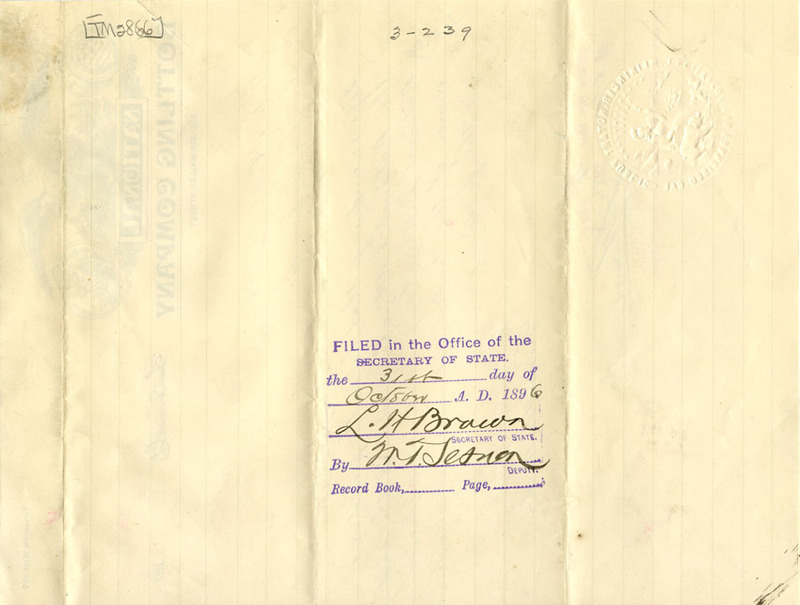 [TM2866]
3-239
BOTTLING COMPANY
NATIONAL
FILED in the Office of the
SECRETARY OF STATE.
the 31st day of
October A. D. 1896
L. H Brown
SECRETARY OF STATE.
By W. T. Sesnon
DEPUTY.
Record Book, Page,